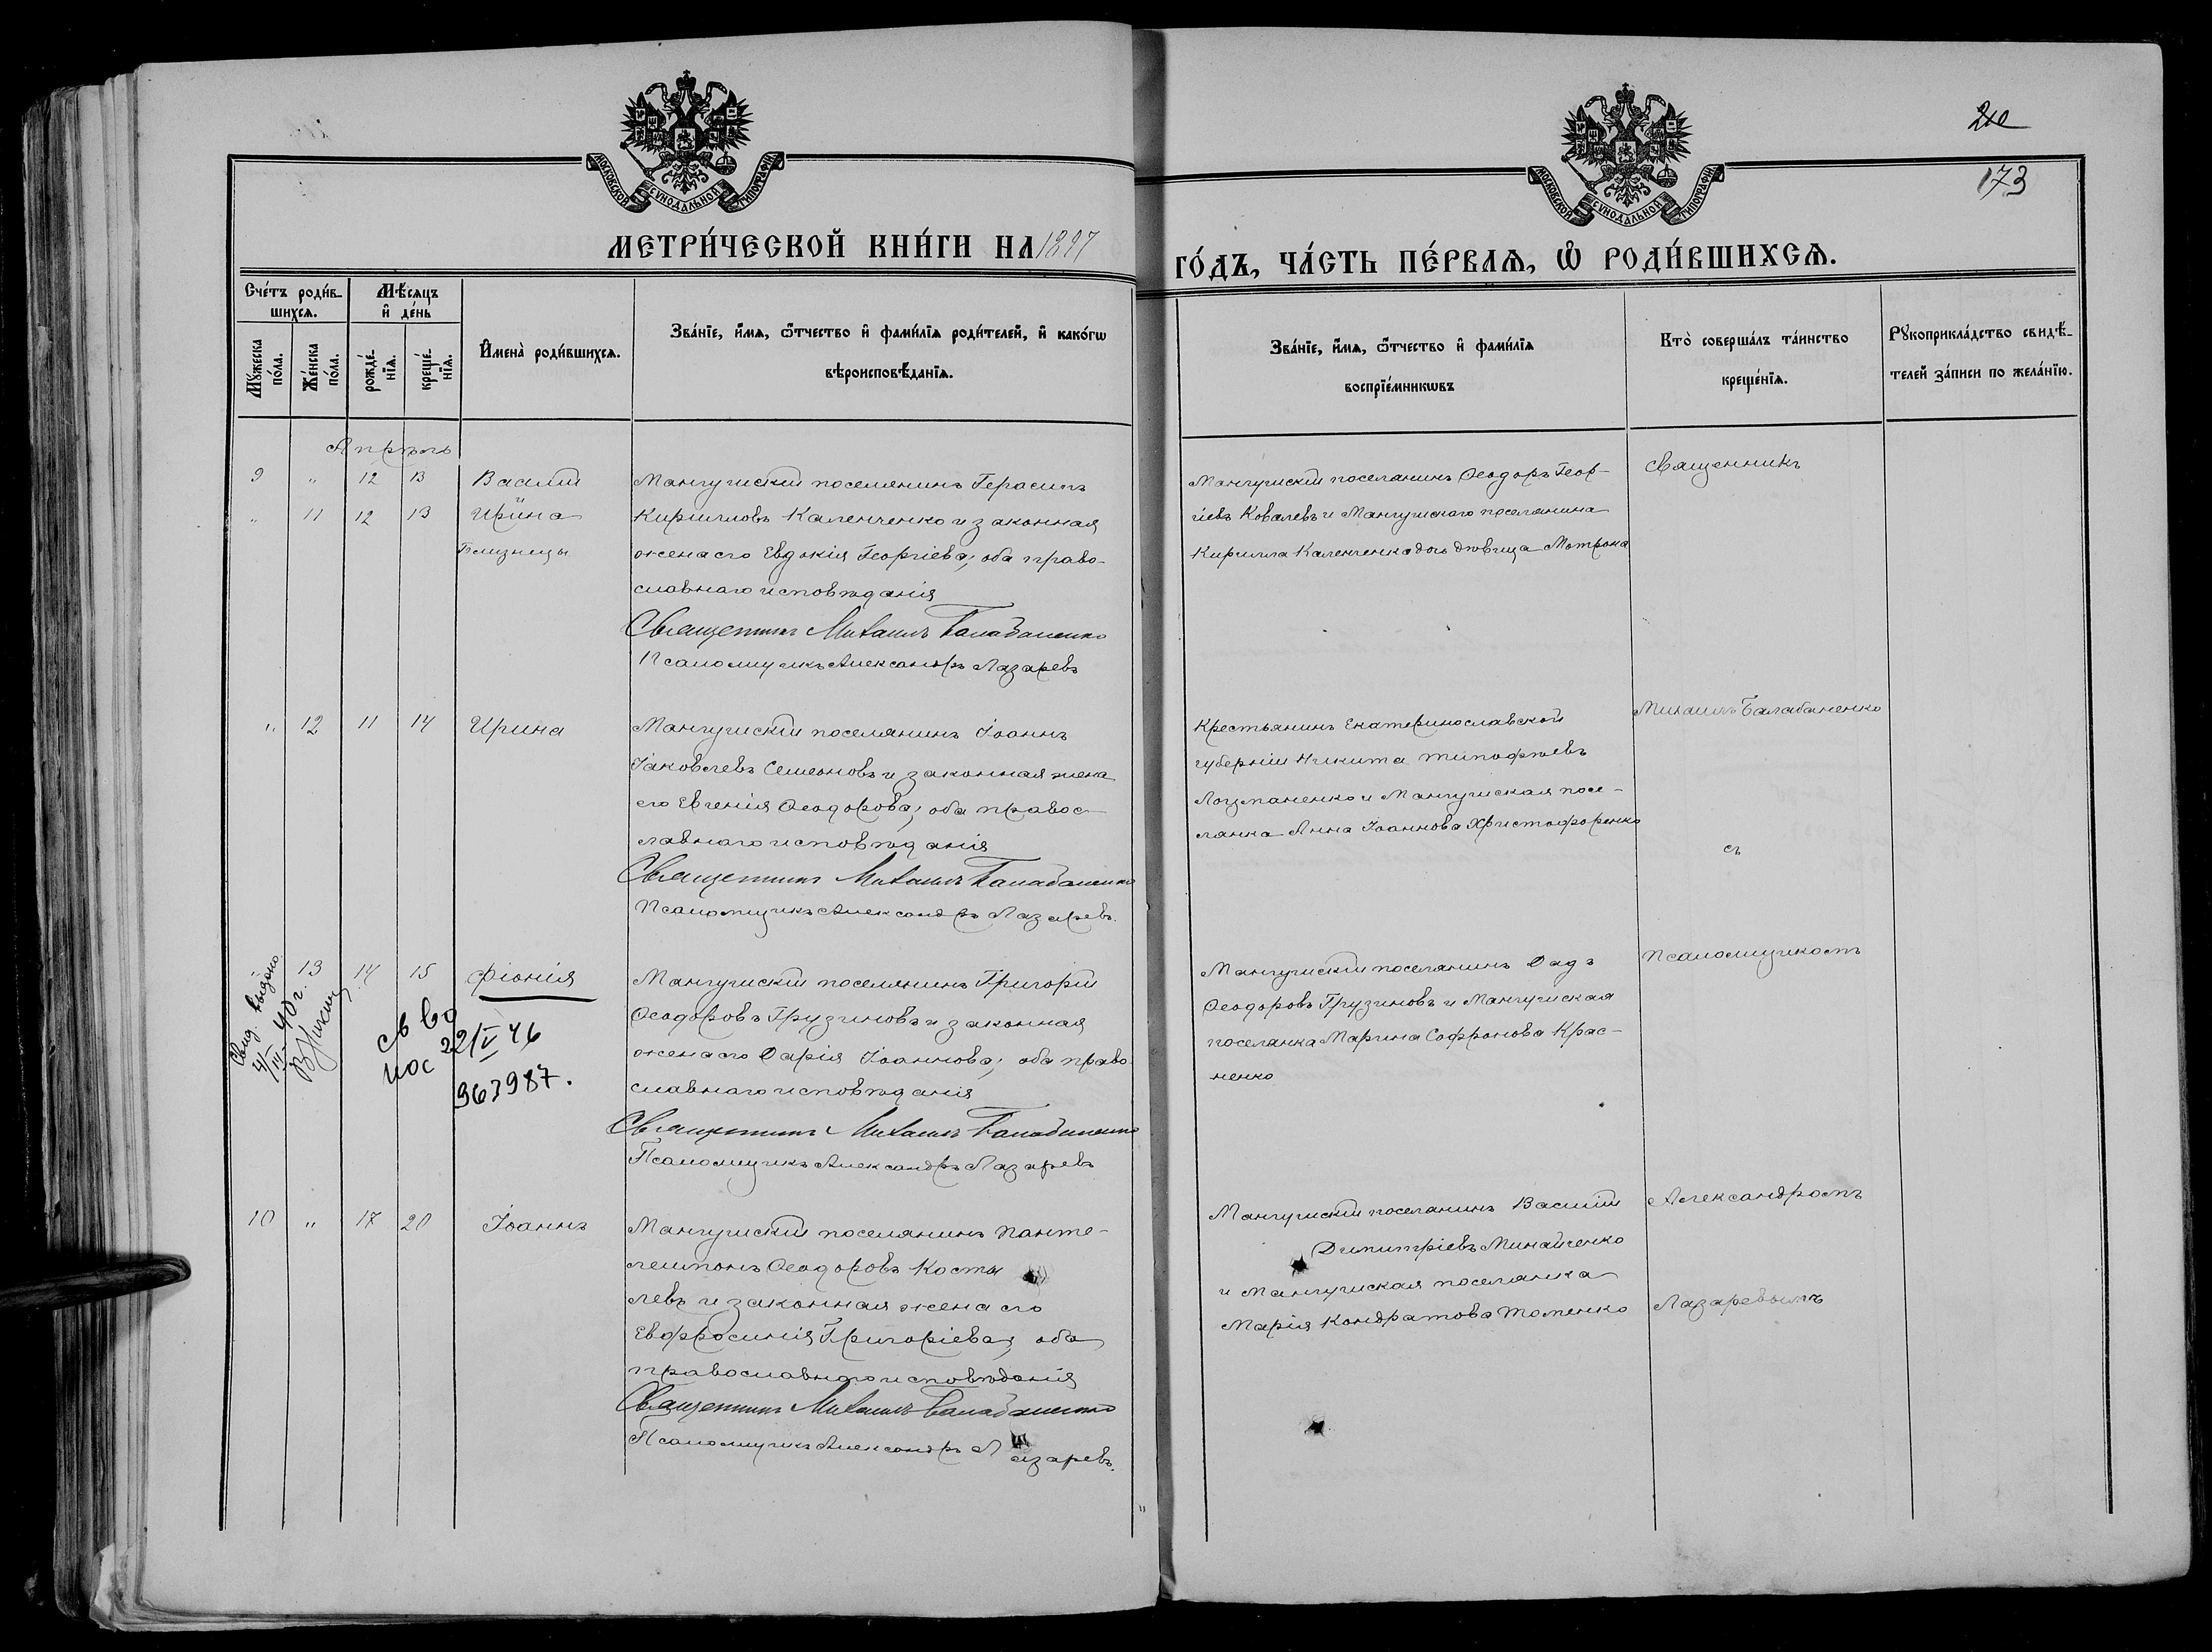 210
173
МОСКОВСКОЙ СѴНОДАЛЬНОЙ ТИПОГРАФІИ
МОСКОВСКОЙ СѴНОДАЛЬНОЙ ТИПОГРАФІИ
МЕТРИ́ЧЕСКОЙ КНИ́ГИ НА 1897
ГО́ДЪ, ЧА́СТЬ ПЕ́РВАѦ, Ѡ҆ РОДИ́ВШИХСѦ.
Сче́тъ роди́в-
шихсѧ.
Мꙋ́жеска по́ла.
Же́нска по́ла.
Мѣ́сѧцъ
и҆ де́нь
рожде́-
нїѧ.
креще́-
нїѧ.
И҆мена̀ роди́вшихсѧ.
Зва́нїе, и҆́мѧ, ѻ҆́тчество и҆ фами́лїѧ роди́телей, и҆ како́гѡ
вѣроисповѣ́данїѧ.
Зва́нїе, и҆́мѧ, ѻ҆́тчество и҆ фами́лїѧ
воспрїе́мникѡвъ
Кто̀ соверша́лъ та́инство
креще́нїѧ.
Рꙋкоприкла́дство свидѣ́-
телей за́писи по жела́нїю.
Апрѣль
9 " 12 13 Василій
и
" 11 12 13 Ирина
Близнецы
Мангушскій поселянинъ Герасимъ
Кирилловъ Каленченко и законная
жена его Евдокія Георгіева; оба право-
славнаго исповѣданія
Священникъ Михаилъ Балабаненко
Псаломщикъ Александръ Лазаревъ
Мангушскій поселянинъ Ѳеодоръ Геор-
гіевъ Ковалевъ и Мангушскаго поселянина
Кирилла Каленченка дочь дѣвица Матрона
Священникъ
" 12 11 14 Ирина
Мангушскій поселянинъ Іоаннъ
Іаковлевъ Семеоновъ и законная жена
его Евгенія Ѳеодорова; оба правос-
лавнаго исповѣданія
Священникъ Михаилъ Балабаненко
Псаломщикъ Александръ Лазаревъ.
Крестьянинъ Екатеринославской
губерніи Никита Тимофѣевъ
Лоцманенко и Мангушская посе-
лянка Анна Іоаннова Христофоренко
Михаилъ Балабаненко
съ
" 13 14 15 Фіонія
Свид. выдано
4/III-40 г.
св во
22/V 46
963987.
Мангушскій поселянинъ Григорій
Ѳеодоровъ Грузиновъ и законная
жена его Дарія Іоаннова; оба право-
славнаго исповѣданія
Священникъ Михаилъ Балабаненко
Псаломщикъ Александръ Лазаревъ
Мангушскій поселянинъ
Ѳеодоровъ Грузиновъ и Мангушская
поселянка Марина Софронова Крас-
ненко
Псаломщикомъ
10 " 17 20 Іоаннъ
Мангушскій поселянинъ Панте-
леимонъ Ѳеодоровъ Косты
левъ и законная жена его
Евфросинія Григоріева; оба
православнаго исповѣданія
Священникъ Михаилъ Балабаненко
Псаломщикъ Александръ Лазаревъ.
Мангушскій поселянинъ Василій
Димитріевъ Минайченко
и Мангушская поселянка
Марія Кондратова Томенко
Александромъ
Лазаревымъ